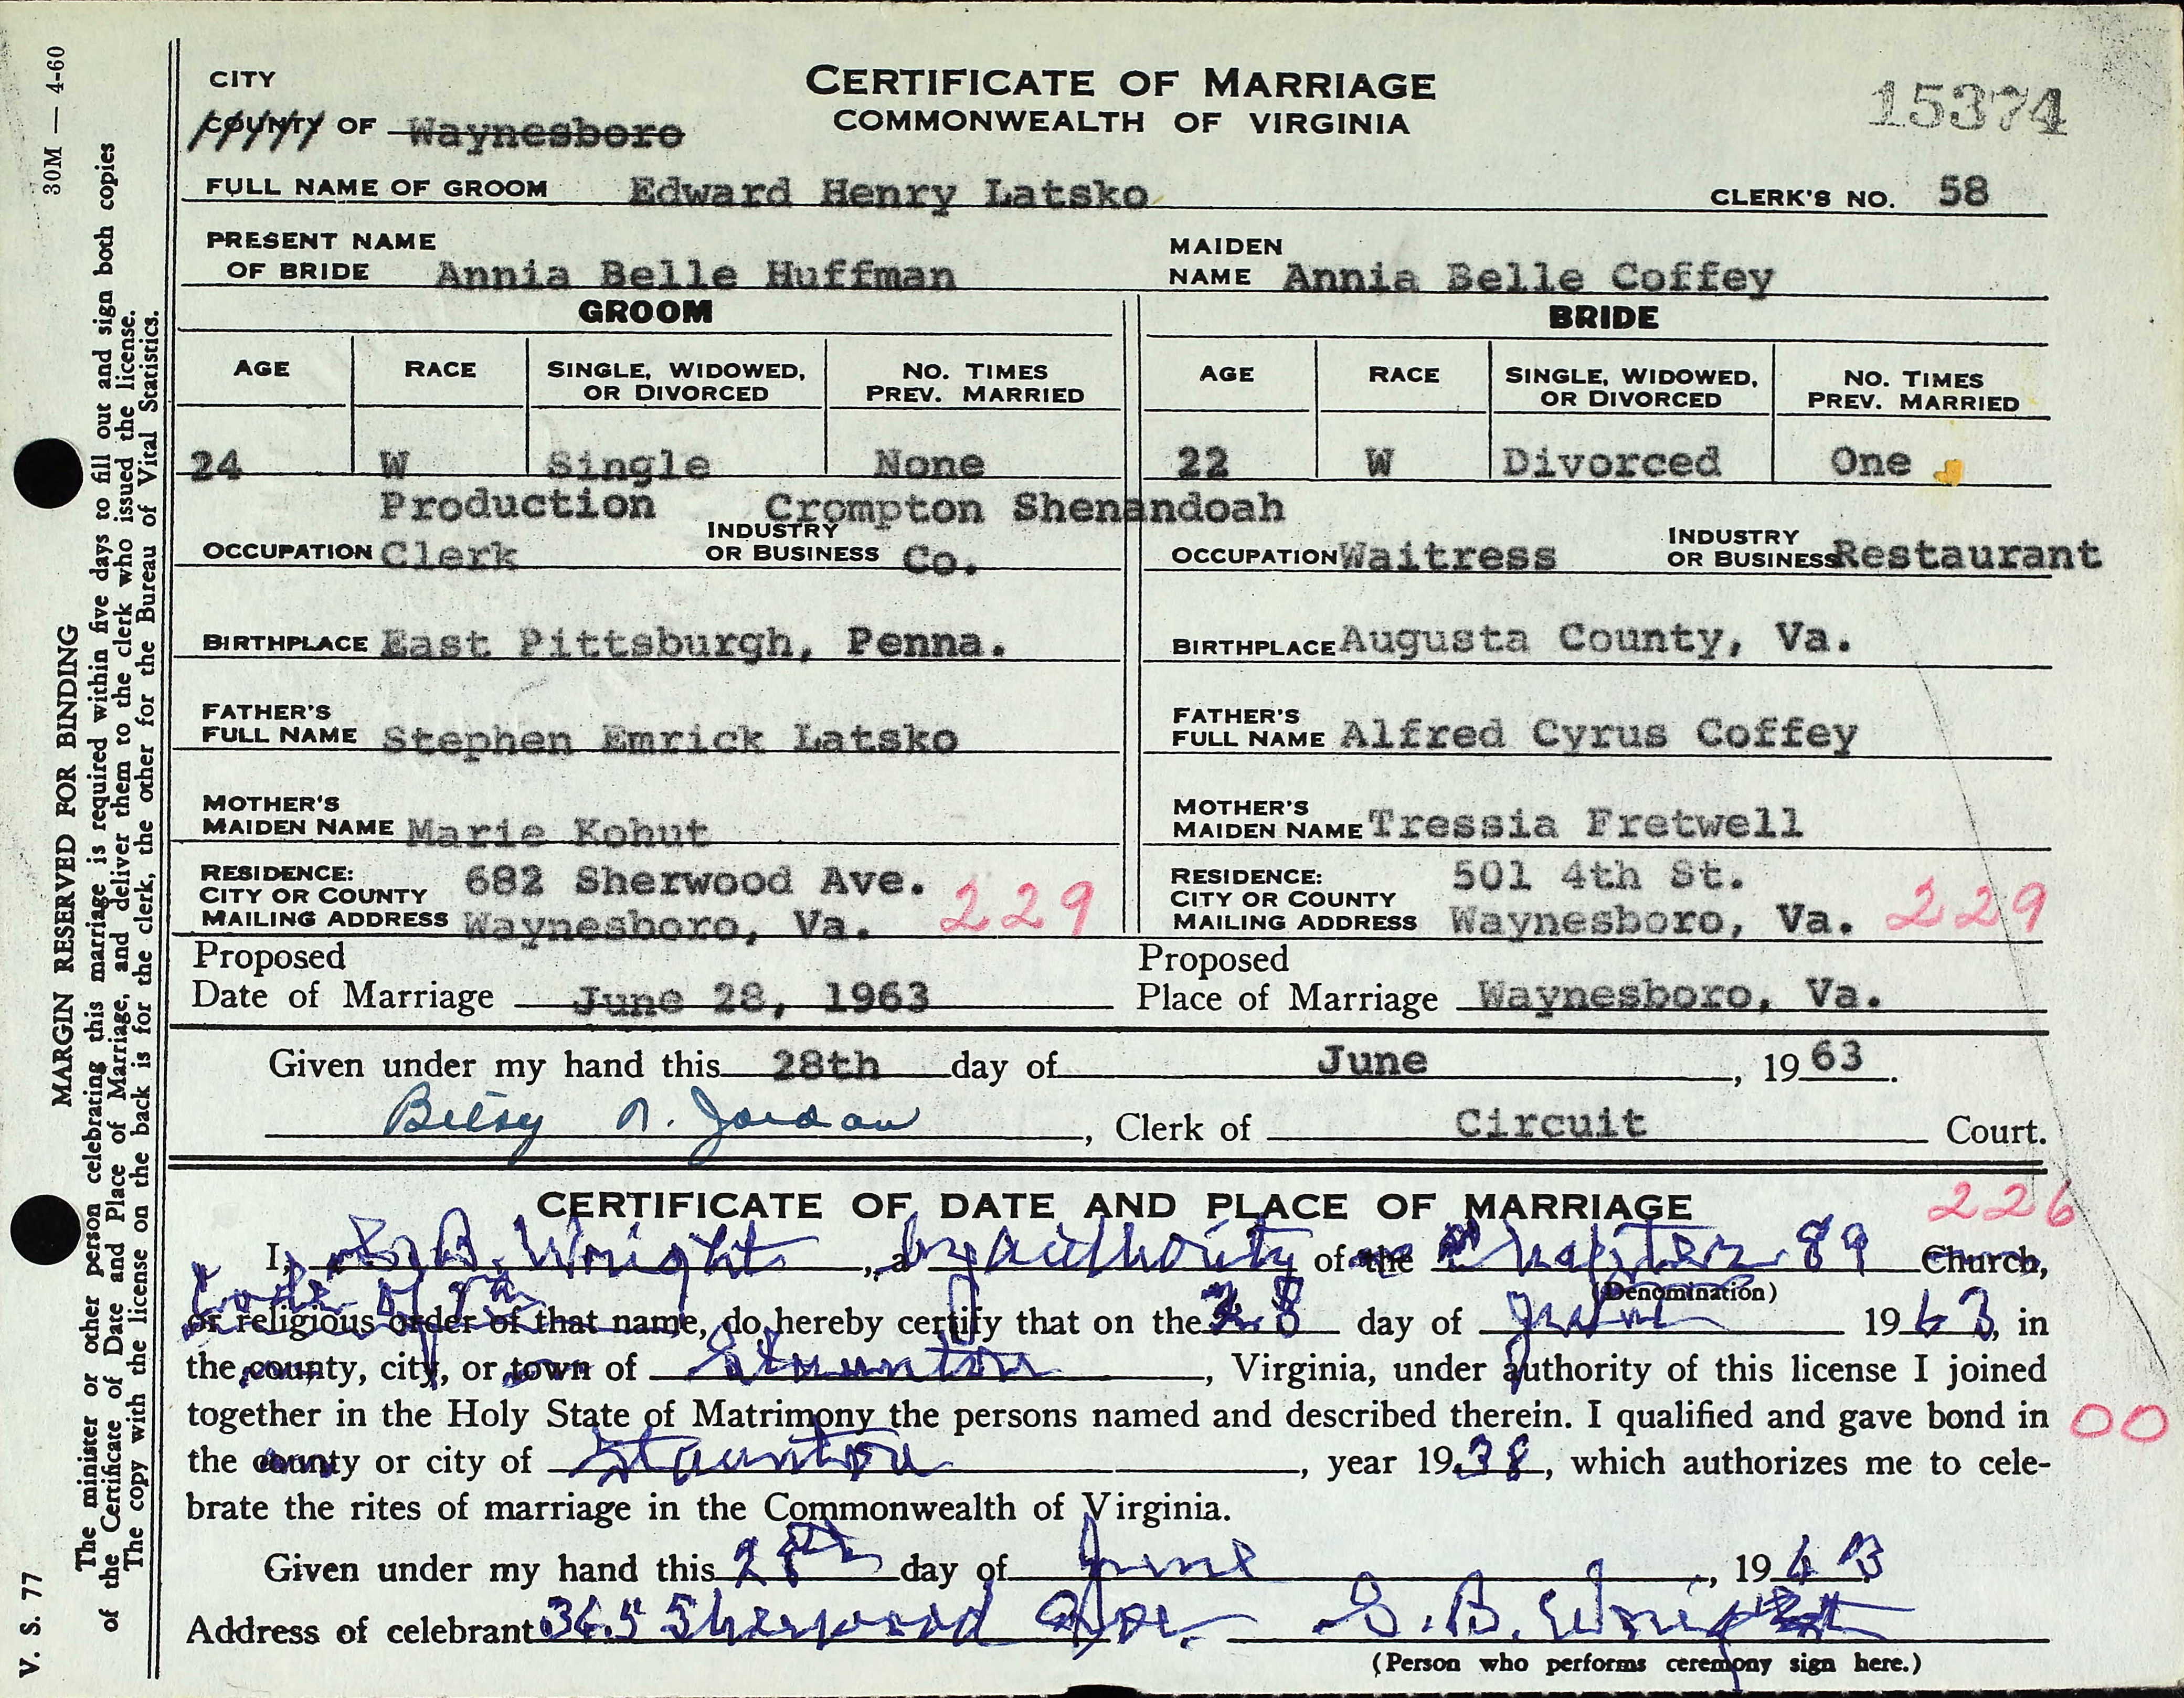 CITY
COUNTY OF Waynesboro
CERTIFICATE OF MARRIAGE
COMMONWEALTH OF VIRGINIA
15374
FULL NAME OF GROOM Edward Henry Latsko CLERK'S NO. 58
PRESENT NAME
OF BRIDE Annia Belle Huffman
MAIDEN
NAME Annia Belle Coffey
GROOM
BRIDE
AGE RACE SINGLE, WIDOWED, OR DIVORCED NO. TIMES PREV. MARRIED
AGE RACE SINGLE, WIDOWED, OR DIVORCED NO. TIMES PREV. MARRIED
24 W Single None
22 W Divorced One
Production Crompton Shenandoah
OCCUPATION Clerk INDUSTRY OR BUSINESS Co.
OCCUPATION Waitress INDUSTRY OR BUSINESS Restaurant
BIRTHPLACE East Pittsburgh, Penna.
BIRTHPLACE Augusta County, Va.
FATHER'S
FULL NAME Stephen Emrick Latsko
FATHER'S
FULL NAME Alfred Cyrus Coffey
MOTHER'S
MAIDEN NAME Marie Kohut
MOTHER'S
MAIDEN NAME Tressia Fretwell
RESIDENCE:
CITY OR COUNTY 682 Sherwood Ave.
MAILING ADDRESS Waynesboro, Va. 229
RESIDENCE: 501 4th St.
CITY OR COUNTY
MAILING ADDRESS Waynesboro, Va. 229
Proposed
Date of Marriage June 28, 1963
Proposed
Place of Marriage Waynesboro, Va.
Given under my hand this 28th day of June, 1963.
Betsy N. Jordan, Clerk of Circuit Court.
CERTIFICATE OF DATE AND PLACE OF MARRIAGE
226
I, S. B. Wright, a by authority of the Chapter 89 Church,
(Denomination)
Code of Va
or religious order of that name, do hereby certify that on the 28 day of June 1963, in
the county, city, or town of Staunton, Virginia, under authority of this license I joined
together in the Holy State of Matrimony the persons named and described therein. I qualified and gave bond in 00
the county or city of Staunton, year 1938, which authorizes me to cele-
brate the rites of marriage in the Commonwealth of Virginia.
Given under my hand this 28th day of June, 1963
Address of celebrant 365 Sherwood Ave. S. B. Wright
(Person who performs ceremony sign here.)
V. S. 77 MARGIN RESERVED FOR BINDING 30M — 4-60
The minister or other person celebrating this marriage is required within five days to fill out and sign both copies
of the Certificate of Date and Place of Marriage, and deliver them to the clerk who issued the license.
The copy with the license on the back is for the clerk, the other for the Bureau of Vital Statistics.